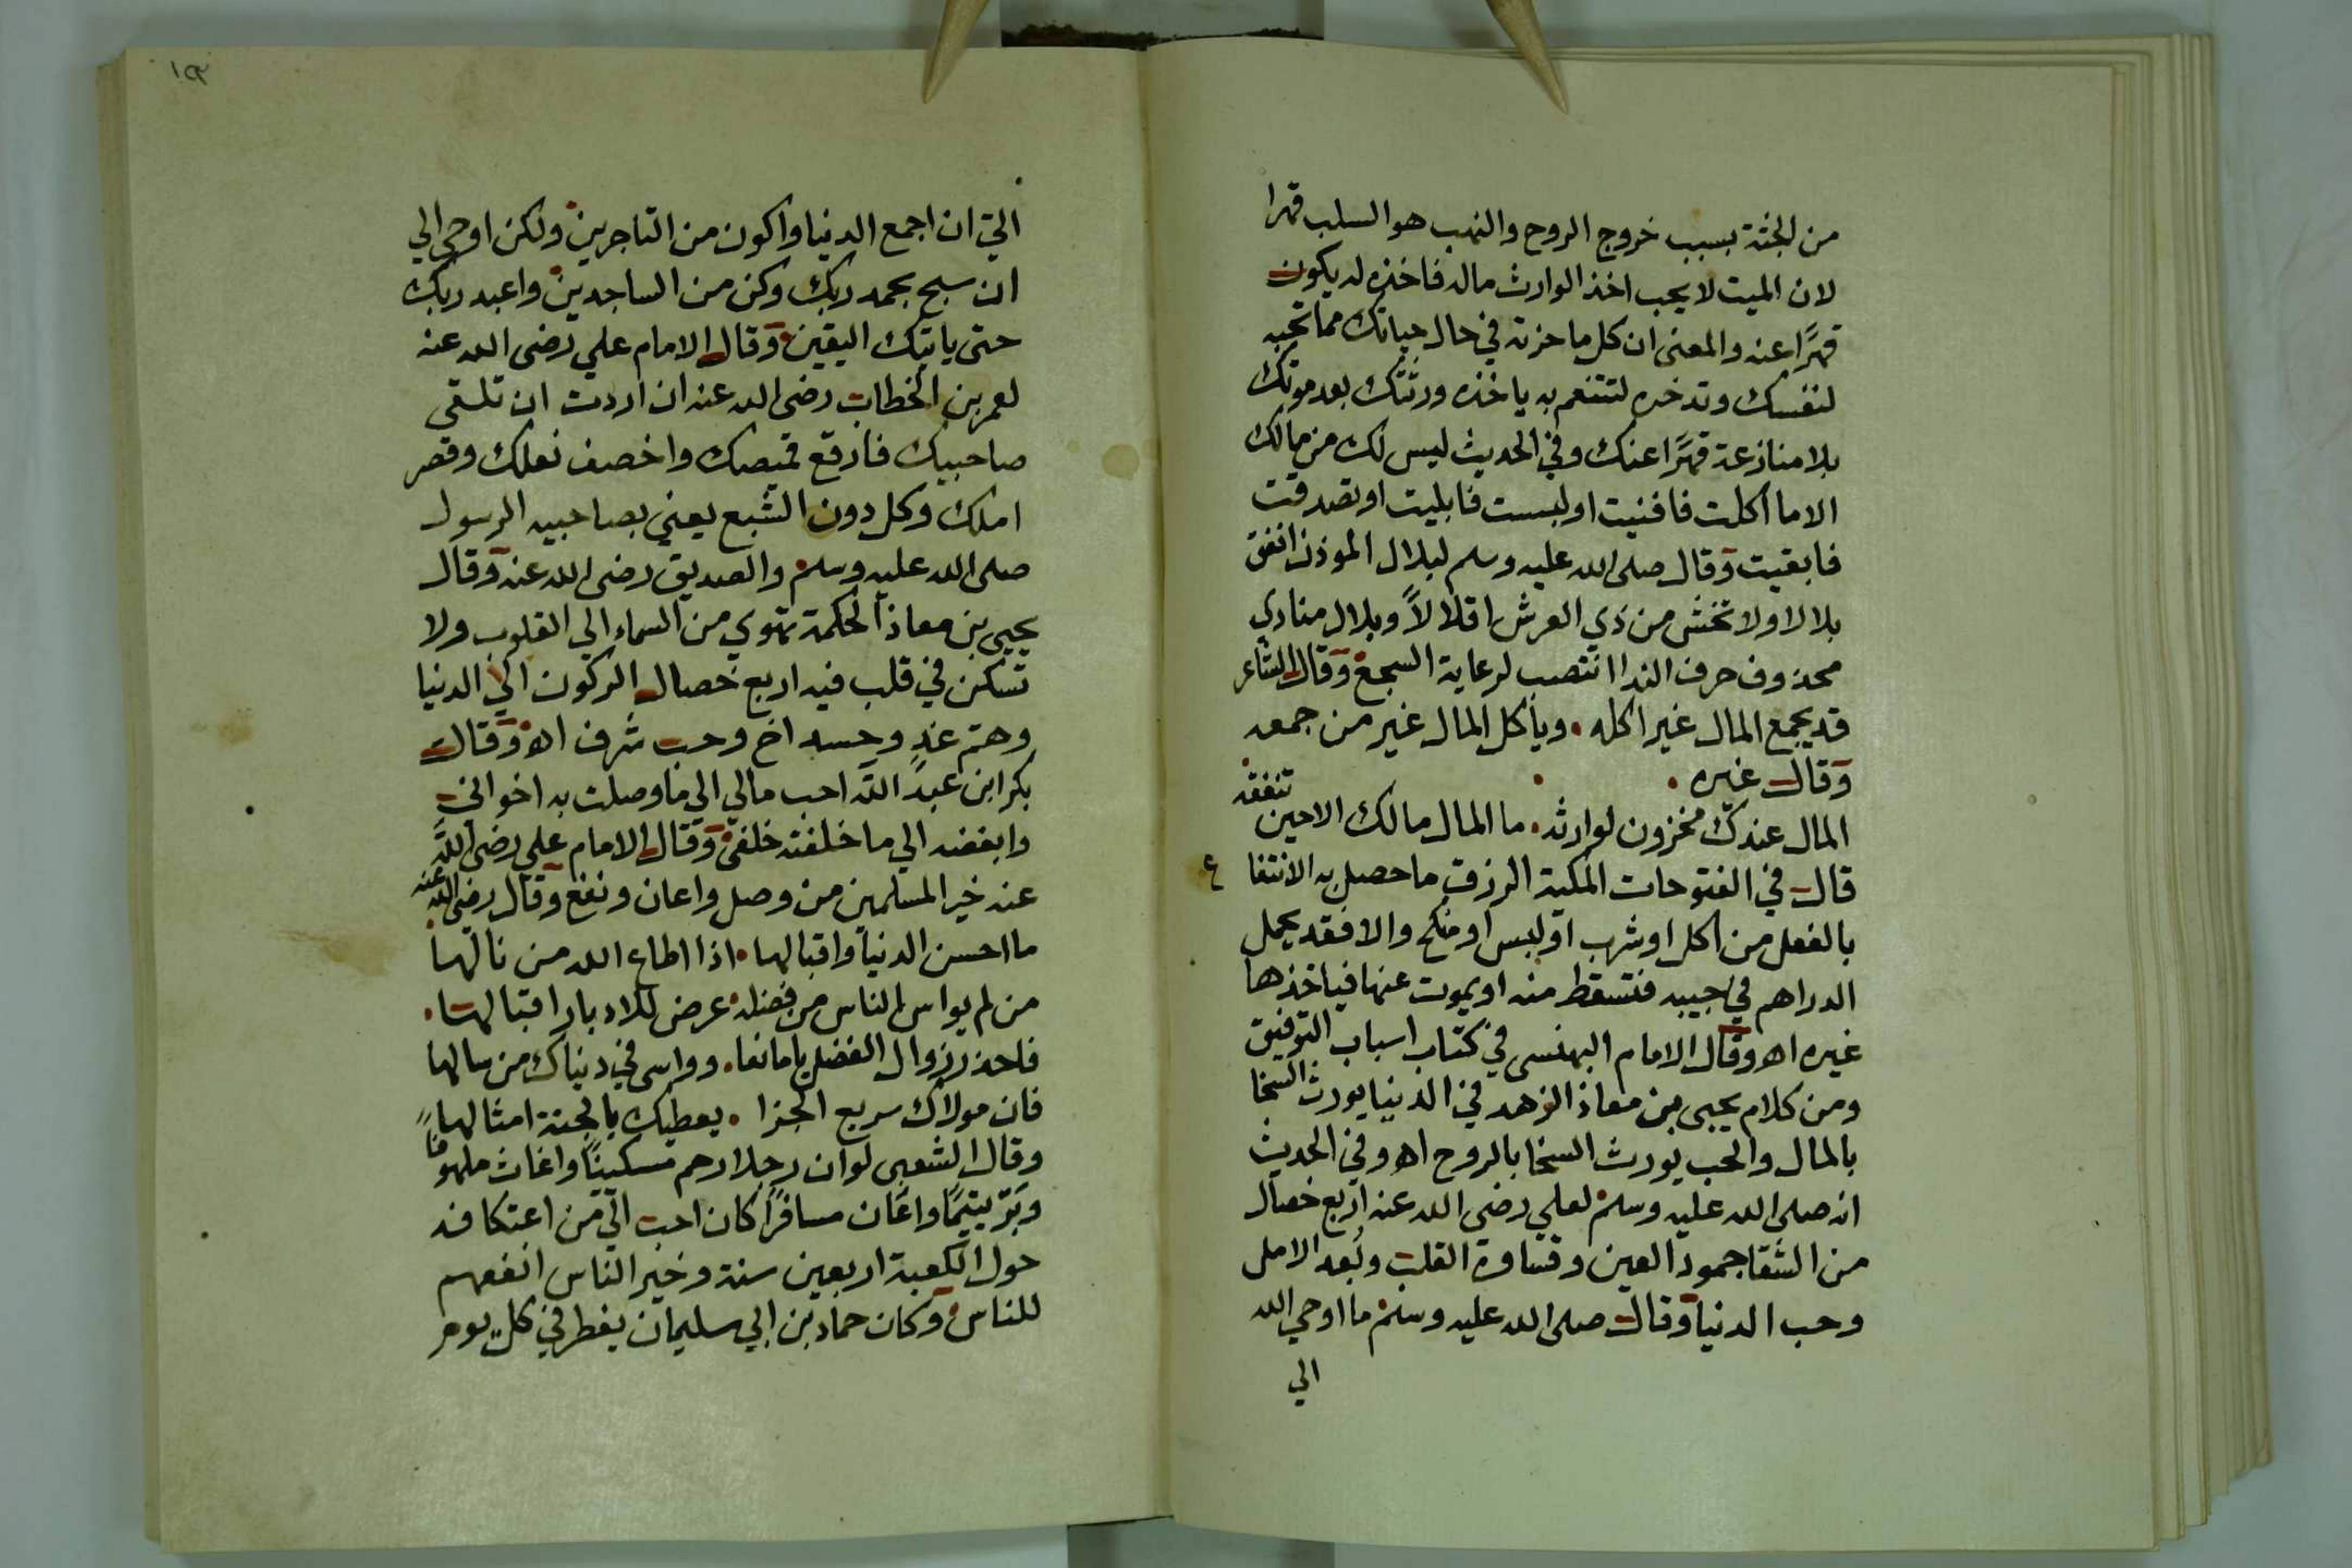 من الجثة بسبب خروج الروح والنهب هو السلب قهرا
لان الميت لا يحب اخذ الوارث ماله فاخذه له يكون
قهرًا عنه والمعنى ان كل ما حزته في حال حياتك مما تحبه
لنفسك وتدخره لتتنعم به ياخذه ورثتك بعد موتك
بلا منازعة قهرًا عنك وفي الحديث ليس لك من مالك
الا ما اكلت فافنيت او لبست فابليت او تصدقت
فابقيت وقال صلى الله عليه وسلم لبلال الموذن انفق
بلالا ولا تخش من ذي العرش اقلالاً وبلال منادي
محذوف حرف الندا انتصب لرعاية السجع وقال الشاعر
قد يجمع المال غير اكله . وياكل المال غير من جمعه
وقال غيره .
المال عندك مخزون لوارثه . ما المال مالك الا حين تنفقه
قال في الفتوحات المكية الرزق ما حصل به الانتفا ع
بالفعل من اكل او شرب او لبس او منكح والا فقد يجمل
الدراهم في جيبه فتسقط منه او يموت عنها فياخذها
غيره اه وقال الامام البهنسى في كتاب اسباب التوفيق
ومن كلام يحيى بن معاذ الزهد في الدنيا يورث السخا
بالمال والحب يورث السخا بالروح اه وفي الحديث
انه صلى الله عليه وسلم لعلي رضى الله عنه اربع خصال
من الشقا جمود العين وقساوة القلب وبُعد الامل
وحب الدنيا وقال صلى الله عليه وسلم ما اوحي الله
الي
١٣
اليّ ان اجمع الدنيا واكون من التاجرين ولكن اوحي الي
ان سبح بحمد ربك وكن من الساجدين واعبد ربك
حتى ياتيك اليقين وقال الامام علي رضى الله عنه
لعمر بن الخطاب رضى الله عنه ان اردت ان تلقى
صاحبيك فارقع قميصك واخصف نعلك وقصر
املك وكل دون الشبع يعني بصاحبيه الرسول
صلى الله عليه وسلم والصديق رضى الله عنه وقال
يحيى بن معاذ الحكمة تهوي من السماء الي القلوب ولا
تسكن في قلب فيه اربع خصال الركون الي الدنيا
وهمّ غدٍ وحسد اخ وحب شرف اه وقال
بكر ابن عبد الله احب مالي الي ما وصلت به اخواني
وابغضه الي ما خلفته خلفي وقال الامام علي رضى الله
عنه خير المسلمين من وصل واعان ونفع وقال رضى الله عنه
ما احسن الدنيا واقبالها . اذا اطاع الله من نالها
من لم يواس الناس من فضله . عرض للادبار اقبالها .
فاحذر زوال الفضل يا مانعا . وواسى في دنياك من سالها
فان مولاك سريع الجزا . يعطيك بالجنة امثالها
وقال الشعبى لو ان رجلا رحم مسكينًا واغاث ملهوفًا
وبَرّ يتيمًا واعان مسافرًا كان احب اليّ من اعتكافه
حول الكعبة اربعين سنة وخير الناس انفعهم
للناس وكان حماد بن ابي سليمان يفطر في كل يوم